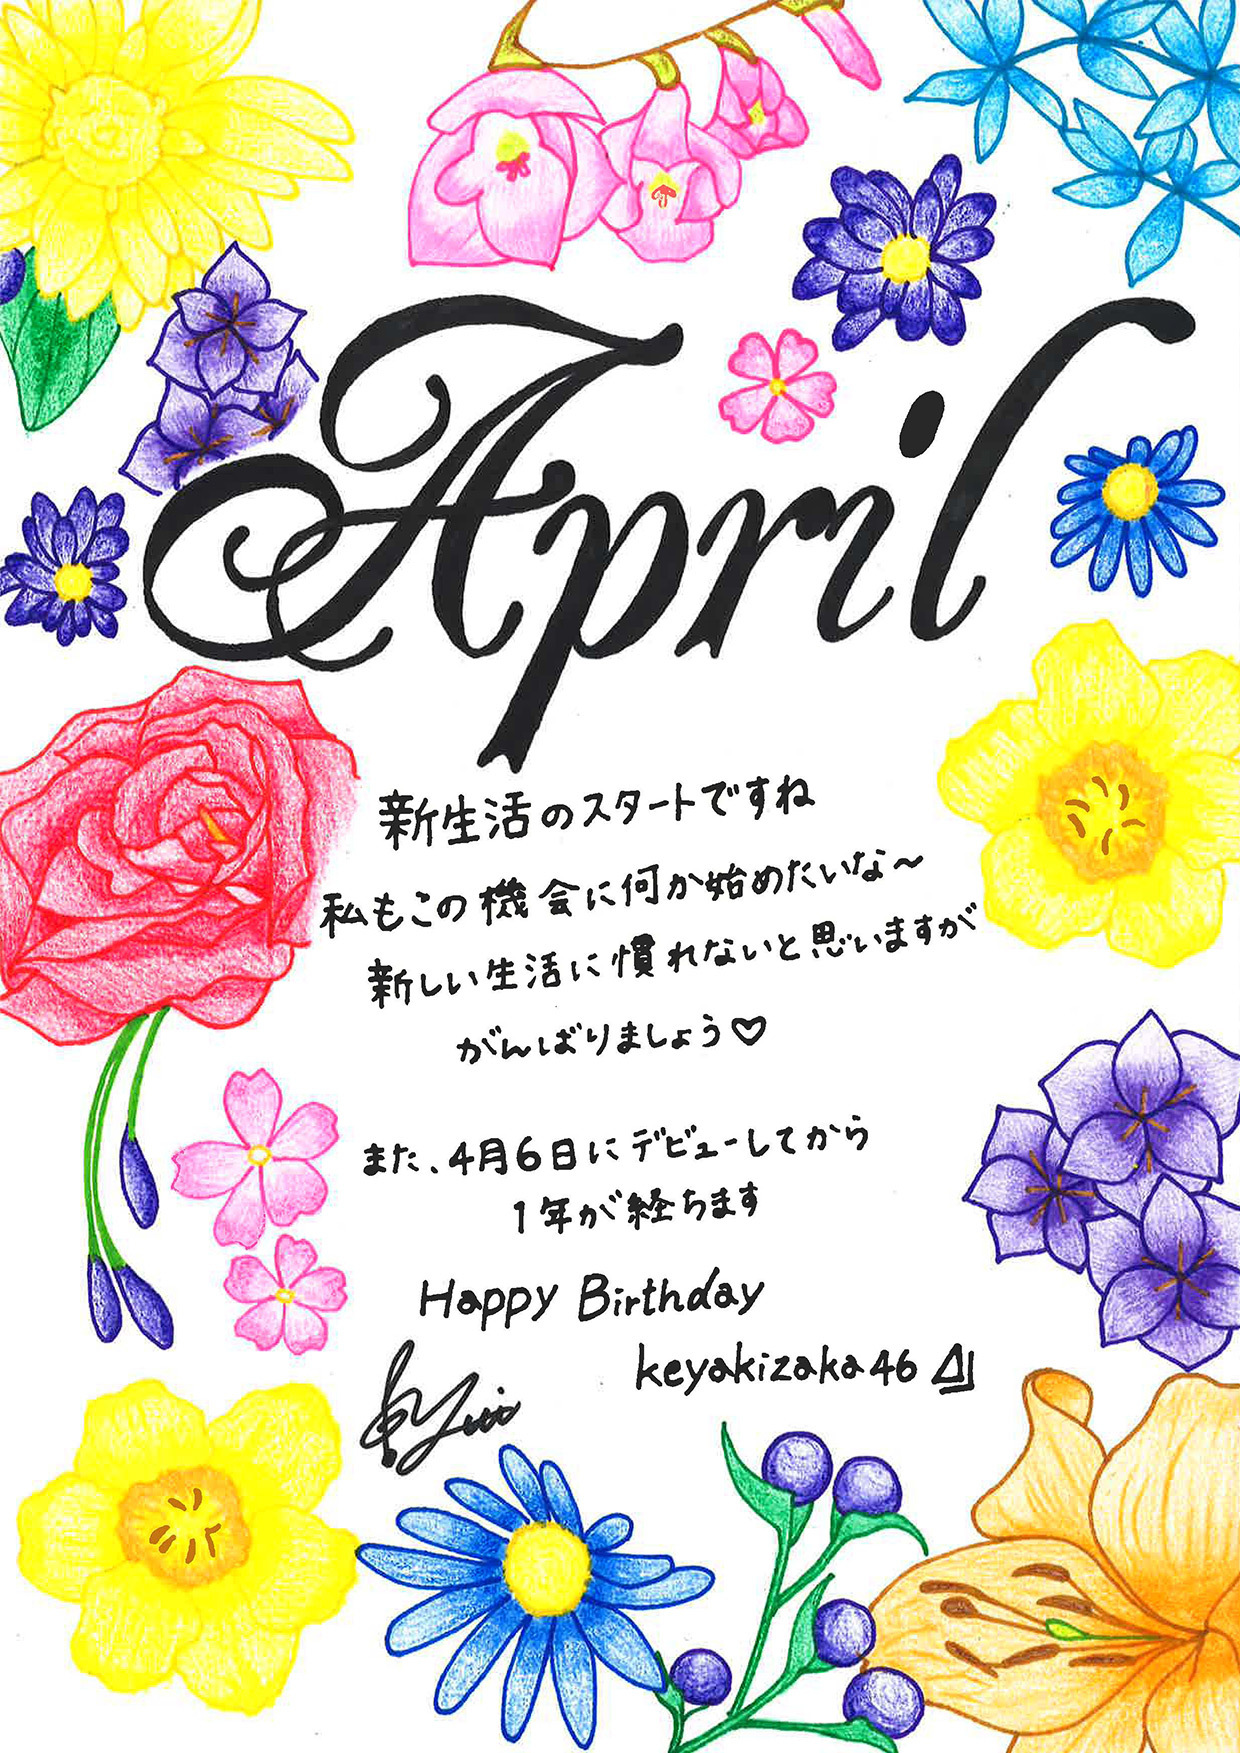 April
新生活のスタートですね
私もこの機会に何か始めたいな～
新しい生活に慣れないと思いますが
がんばりましょう♡
また、4月6日にデビューしてから
1年が経ちます
Happy Birthday
keyakizaka46
Yui